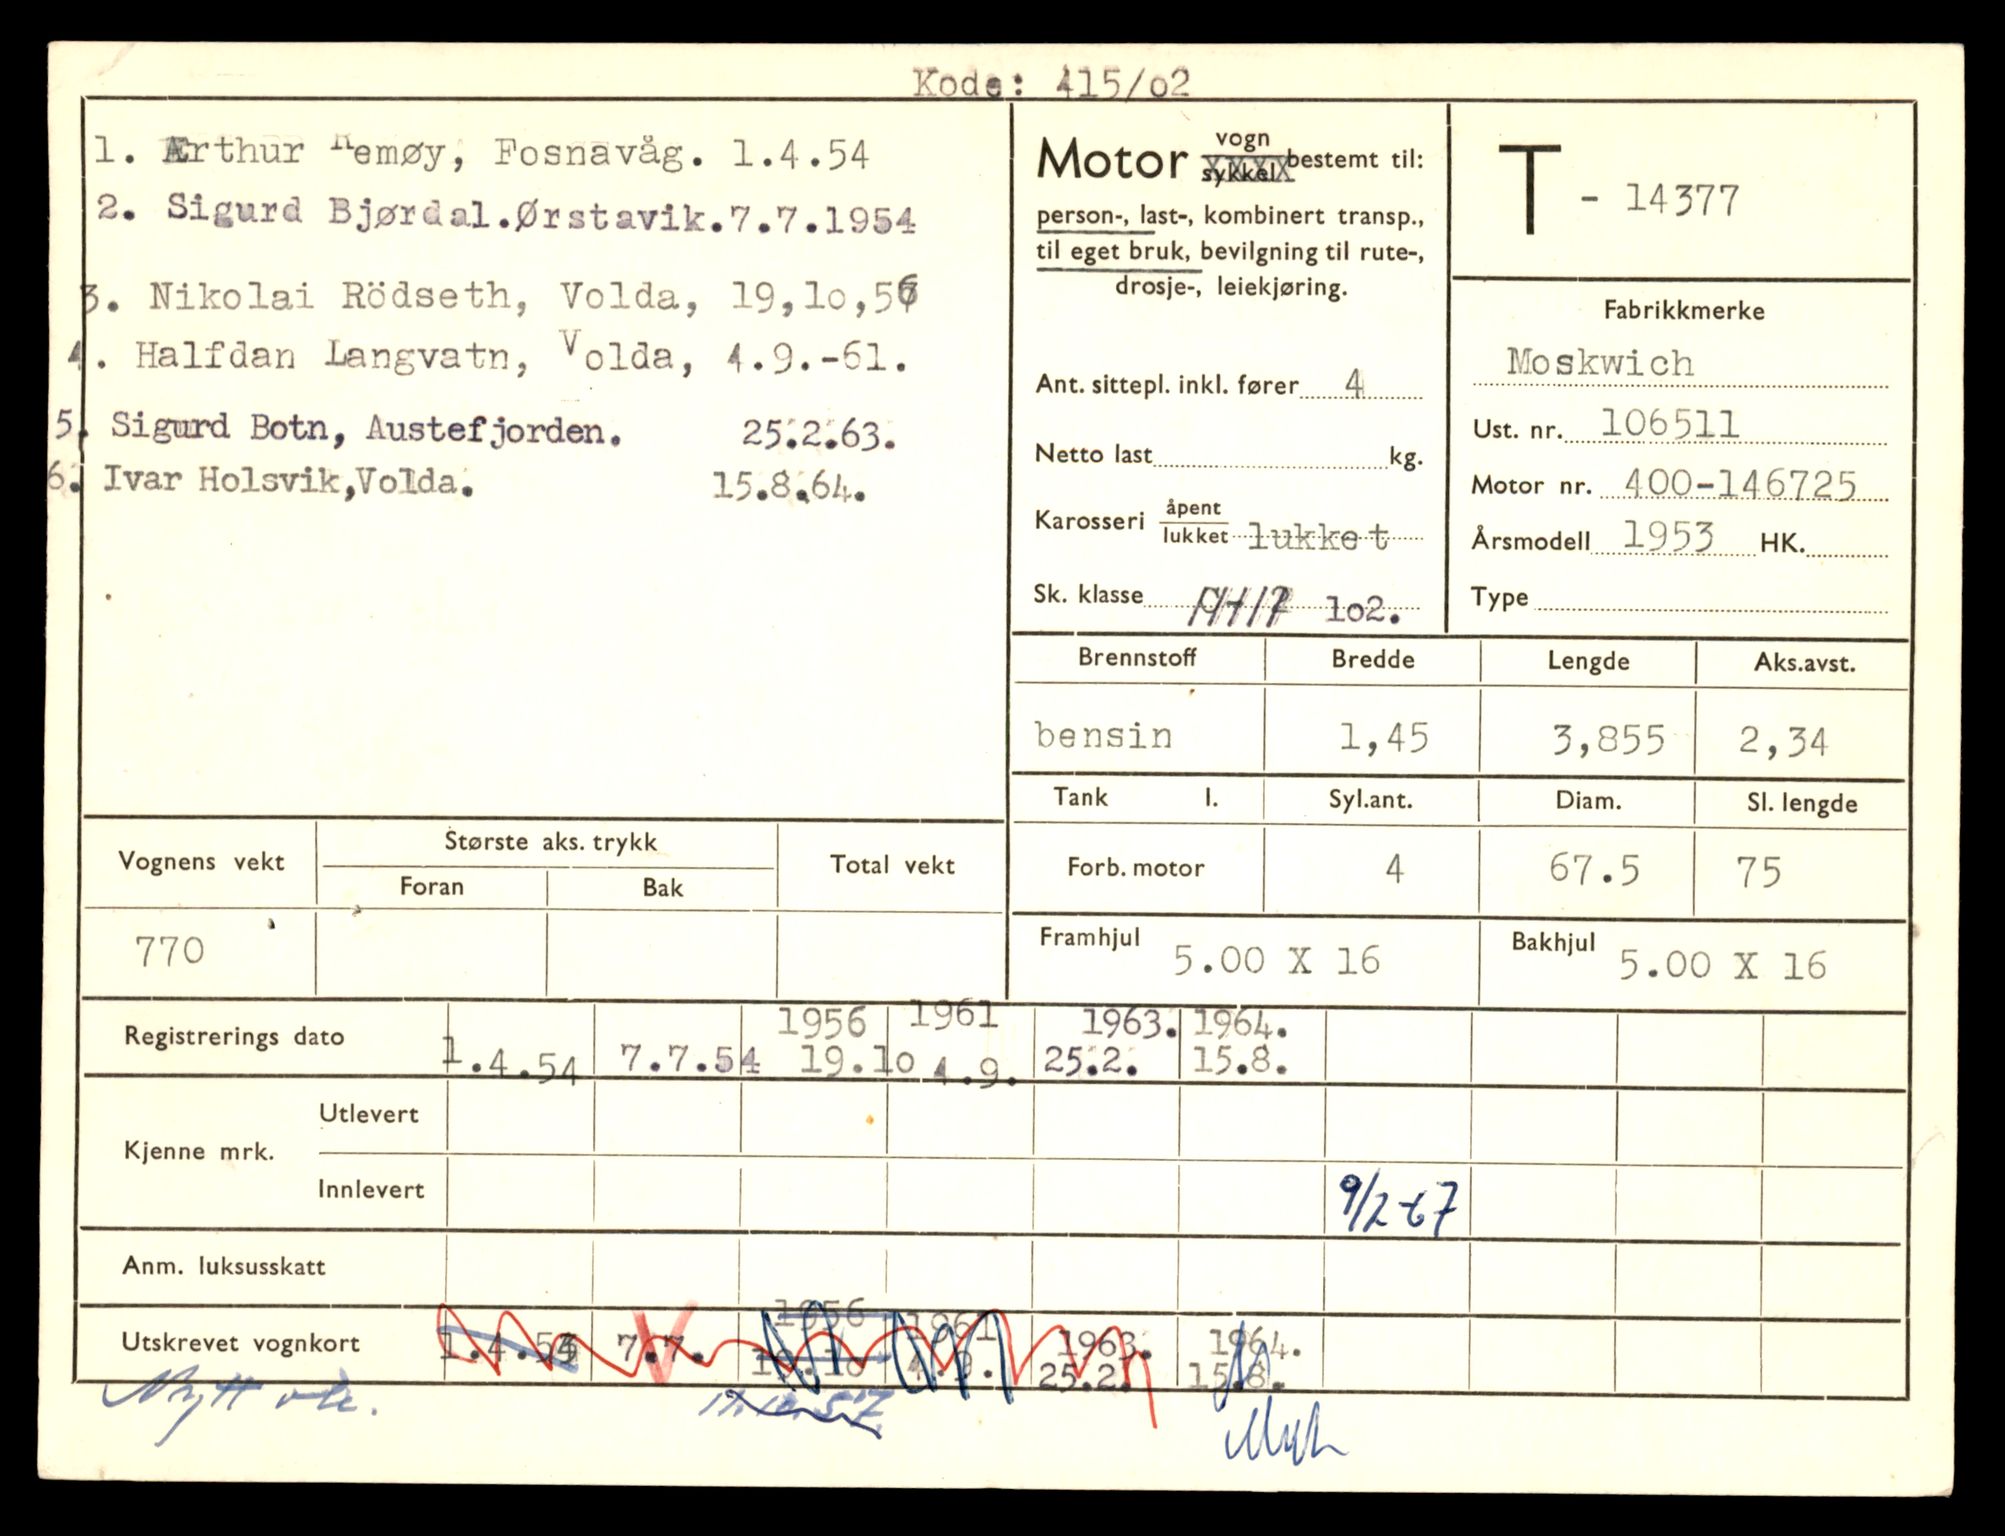 Kode: 415/o2
1. Arthur Remøy, Fosnavåg. 1.4.54
2. Sigurd Bjørdal.Ørstavik.7.7.1954
3. Nikolai Rödseth, Volda, 19,1o,56
4. Halfdan Langvatn, Volda, 4.9.-61.
5. Sigurd Botn, Austefjorden. 25.2.63.
6. Ivar Holsvik,Volda. 15.8.64.
Motor vogn sykkel bestemt til:
person-, last-, kombinert transp.,
til eget bruk, bevilgning til rute-,
drosje-, leiekjøring.
Ant. sittepl. inkl. fører 4
Netto last kg.
Karosseri åpent lukket lukket
Sk. klasse 1o2.
T - 14377
Fabrikkmerke
Moskwich
Ust. nr. 106511
Motor nr. 400-146725
Årsmodell 1953 HK.
Type
Brennstoff Bredde Lengde Aks.avst.
bensin 1,45 3,855 2,34
Tank l. Syl.ant. Diam. Sl. lengde
Forb. motor 4 67.5 75
Framhjul 5.00 X 16 Bakhjul 5.00 X 16
Vognens vekt Største aks. trykk Total vekt
Foran Bak
770
1956 1961 1963. 1964.
Registrerings dato 1.4.54 7.7.54 19.1o 4.9. 25.2. 15.8.
Kjenne mrk. Utlevert
Innlevert 9/2-67
Anm. luksusskatt
1956 1961 1963. 1964.
Utskrevet vognkort 1.4.54 7.7. 19.10 4.9. 25.2. 15.8.
Nytt vk.